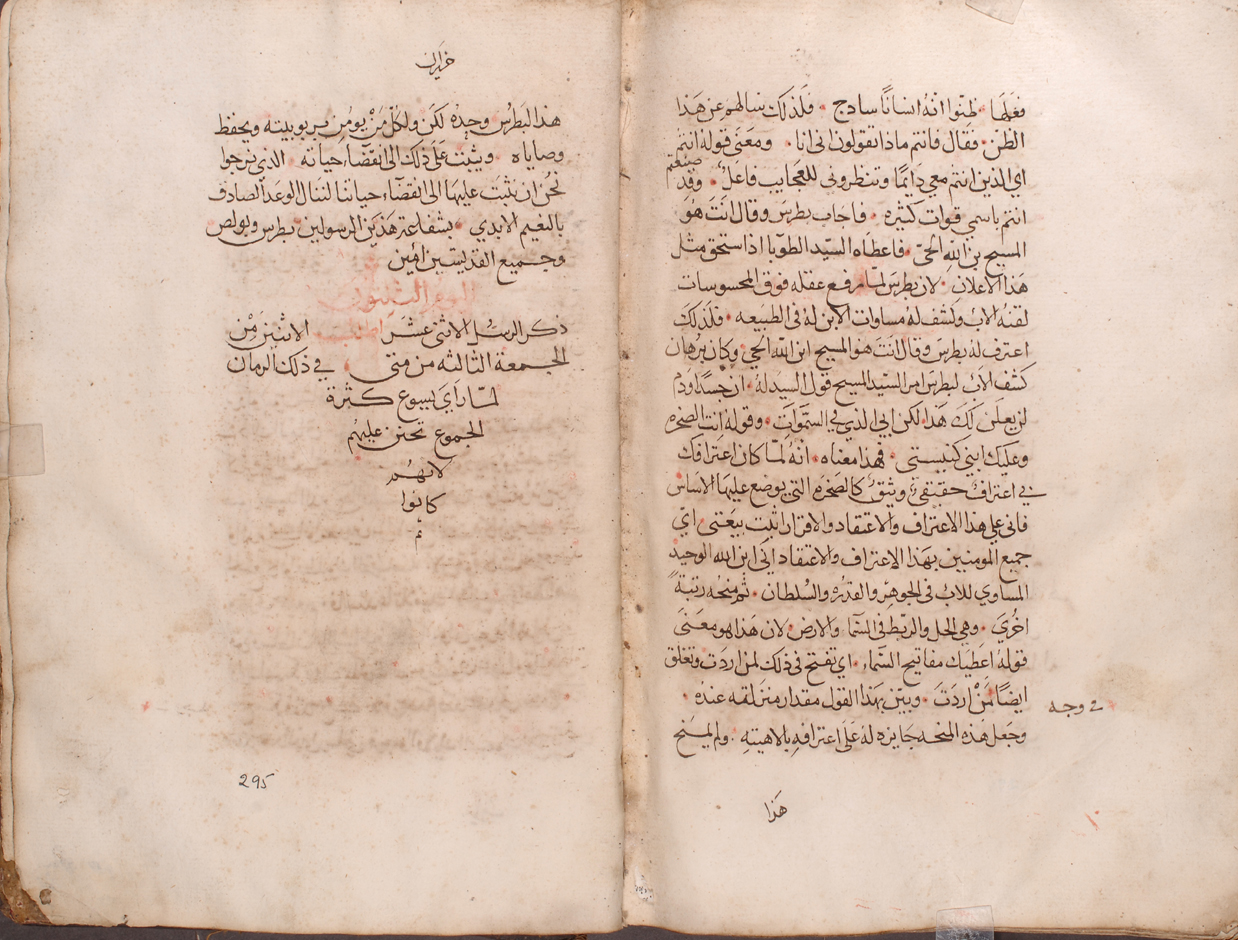 فعلها ظنوا انه انسانًا سادج • فلذلك سالهم عن هذا
الظن • فقال فانتم ماذا تقولون اني انا • ومعنى قوله انتم
اي الذين انتم معي دايمًا وتنظروني للعجايب فاعلٌ • وقد صنعتم
انتم باسمي قوات كثيره • فاجاب بطرس وقال انت هو
المسيح بن الله الحيّ • فاعطاه السيّد الطوبا اذ استحق مثل
هذا الاعلان • لان بطرس لما رفع عقله فوق المحسوسات
لقنه الاب وكشف له مساوات الابن له في الطبيعه • فلذلك
اعترف له بطرس وقال انت هو المسيح ابن الله الحي • وكان برهان
كشف الاب لبطرس امر السيد المسيح قول السيد له • ان جسدًا ودم
لن يعلن لك هذا لكن ابي الذي في السموات • وقوله انت الصخره
وعليك ابني كنيستي • فهذا معناه • انه لما كان اعترافك
في اعتراف حقيقي وثيق كالصخره التي يوضع عليها الاساس
فاني على هذا الاعتراف والاعتقاد والاقرار اثبت بيعتي • اي
جميع المومنين بهذا الاعتراف والاعتقاد اني ابن الله الوحيد
المساوي للاب في الجوهر والقدره والسلطان • ثم منحه رتبةً
اخرى • وهي الحل والربط في السما والارض • لان هذا هو معنى
قوله اعطيك مفاتيح السماء • اي تفتح في ذلك لمن اردت وتغلق
ايضًا لمن اردت • وبيّن بهذا القول مقدار منزلقه عنده •
في وجه
وجعل هذه المنحه جايزه له على اعترافه بالاهيته • ولم يمنح
هذا
حزيران
هذا لبطرس وحده لكن ولكل من يومن بربوبيته ويحفظ
وصاياه • ويثبت على ذلك الى انقضاء حياته • الذي نرجوا
نحن ان نثبت عليها الى انقضاء حياتنا لننال الوعد الصادق
بالنعيم الابدي • بشفاعة هذين الرسولين بطرس وبولص
وجميع القديسين امين
اليوم الثلثون
ذكر الرسل الاثني عشر الاثنين من
الجمعة الثالثه من متى • في ذلك الزمان
لما راي يسوع كثرة
الجموع تحنن عليهم
لانهم
كانوا
295